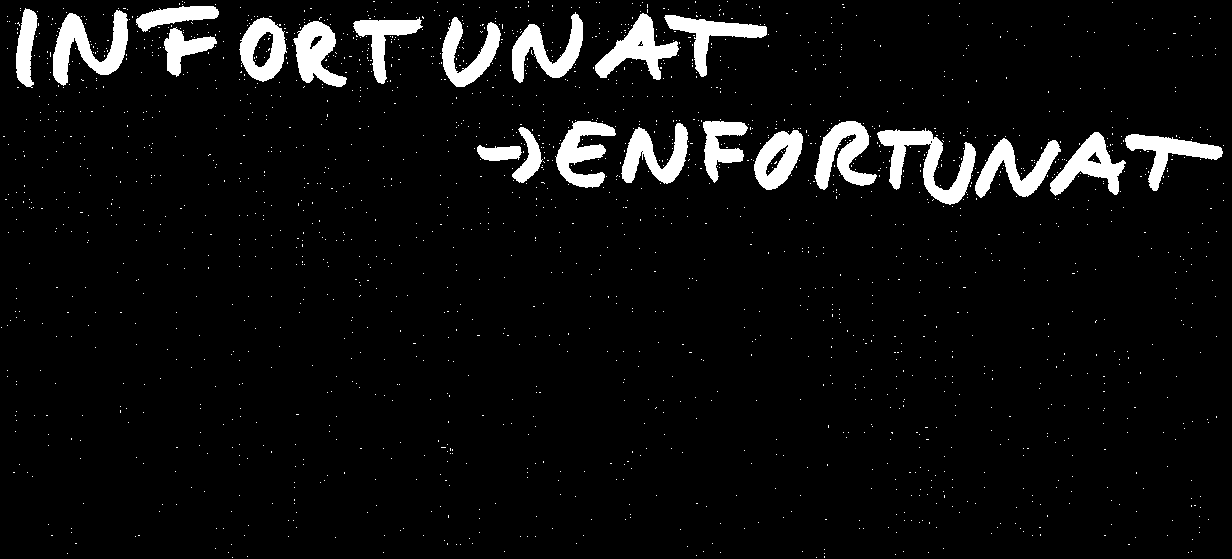 INFORTUNAT
→ENFORTUNAT